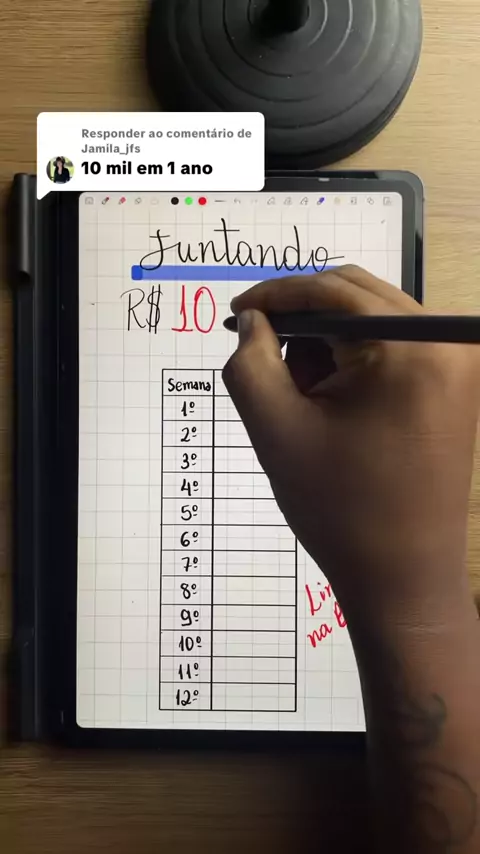 Responder ao comentário de
Jamila_jfs
10 mil em 1 ano
Juntando
R$ 10
Semana
1º
2º
3º
4º
5º
6º
7º
8º
9º
10º
11º
12º
na